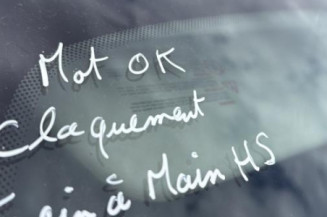 Mot OK
Claquement
à Main HS